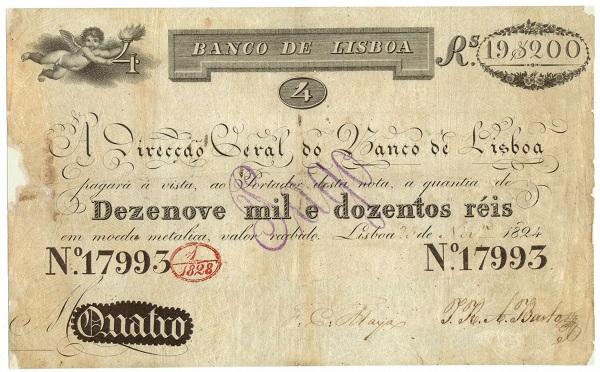 4
BANCO DE LISBOA
Rs. 19$200
4
A Direcção Geral do Banco de Lisboa
pagará à vista, ao Portador desta nota, a quantia de
Dezenove mil e dozentos réis
em moeda metalica, valor recebido. Lisboa de 1824
Pago
No. 17993
1/1828
No. 17993
Quatro